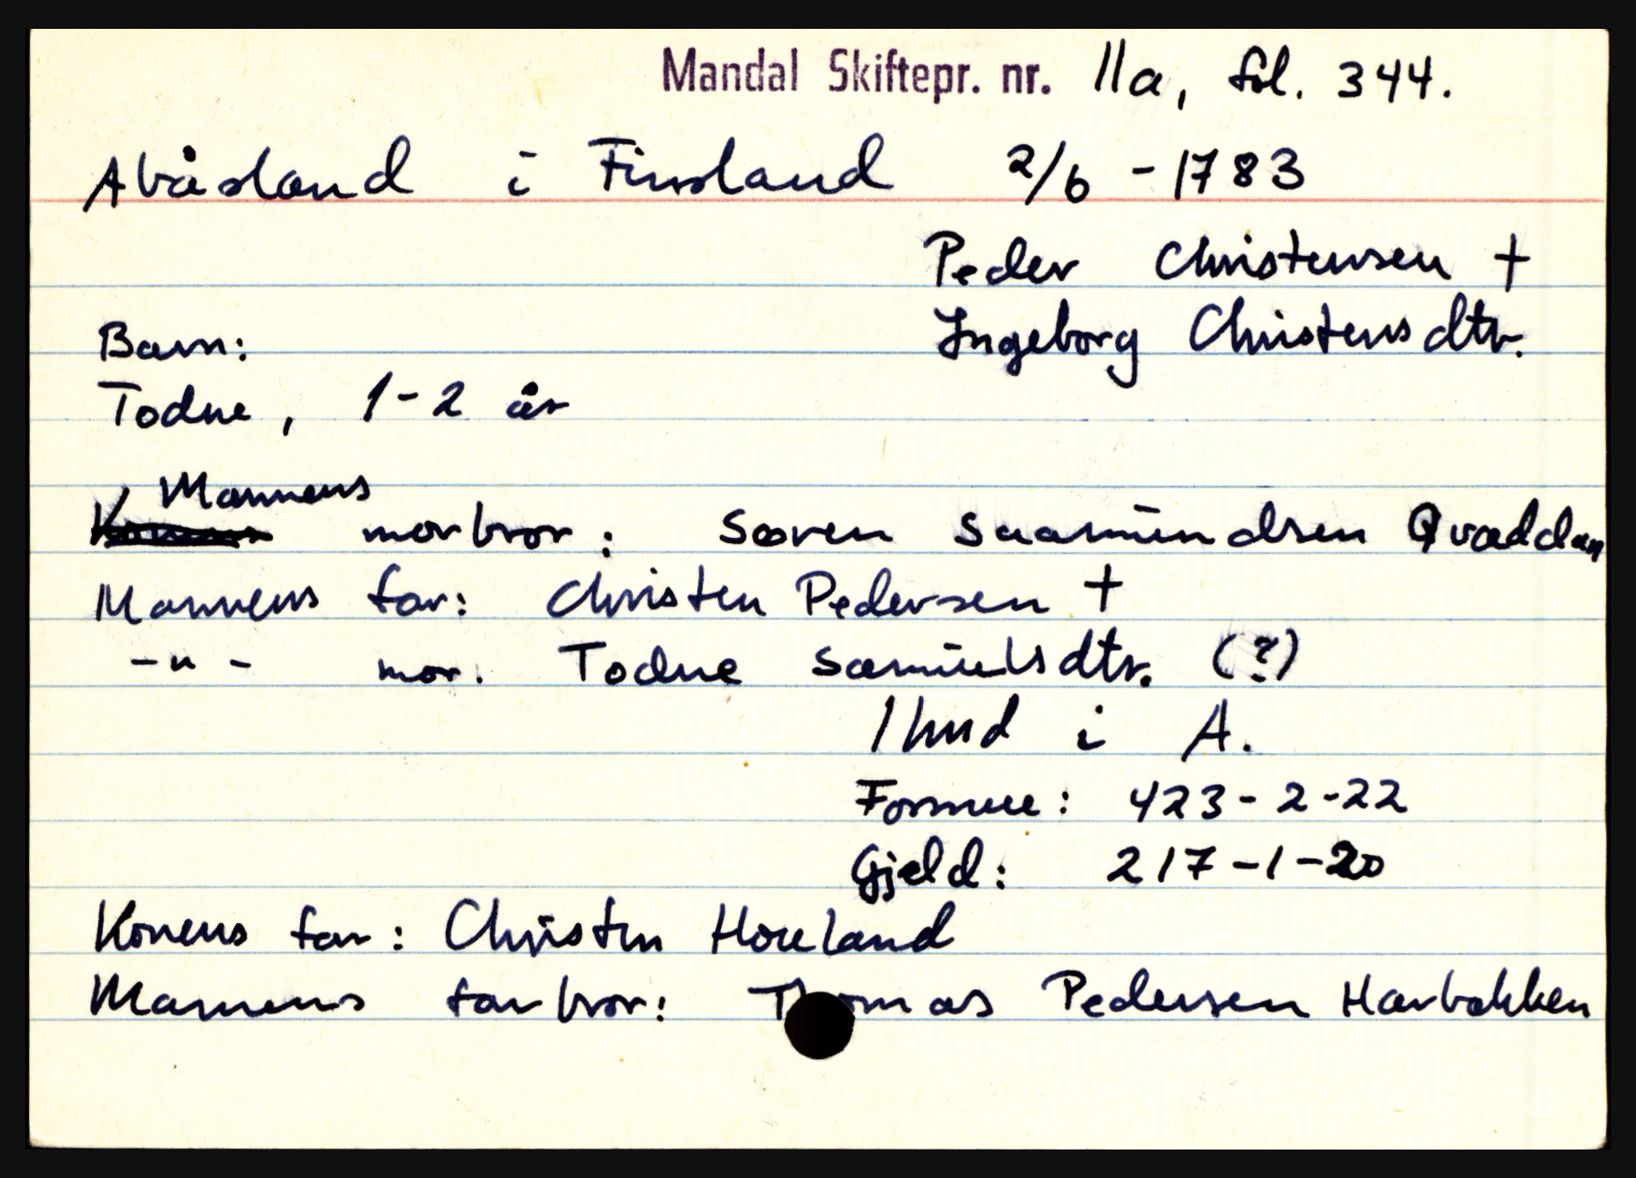 Mandal Skiftepr. nr. 11a, fol. 344.
Abåsland i Finsland 2/6 - 1783
Peder Christensen †
Ingeborg Christensdtr.
Barn:
Todne, 1-2 år
Mannens
Konens morbror: Søren Saamundsen Qvaddan
Mannens far: Christen Pedersen †
-"- mor. Todne Samuelsdtr. (?)
1 hud i A.
Formue: 423-2-22
Gjeld: 217-1-20
Konens far: Christen Houland
Mannens farbror: Thomas Pedersen Harbakken